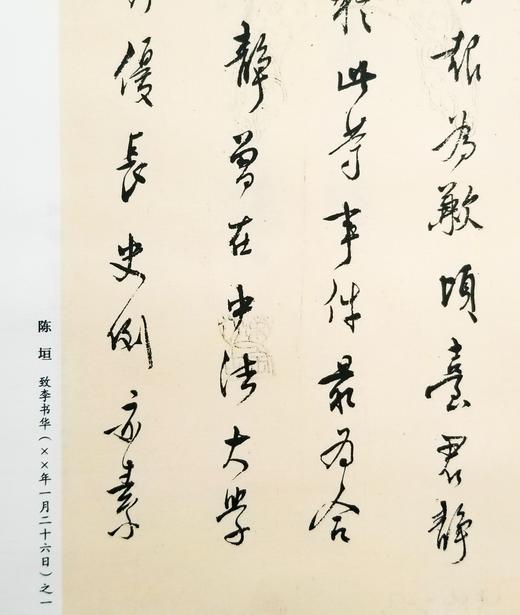 赧为歉顷台君静
于此等事件最为合
静曾在中法大学
优长史例亦素
陈垣 致李书华（××年一月二十六日）之一